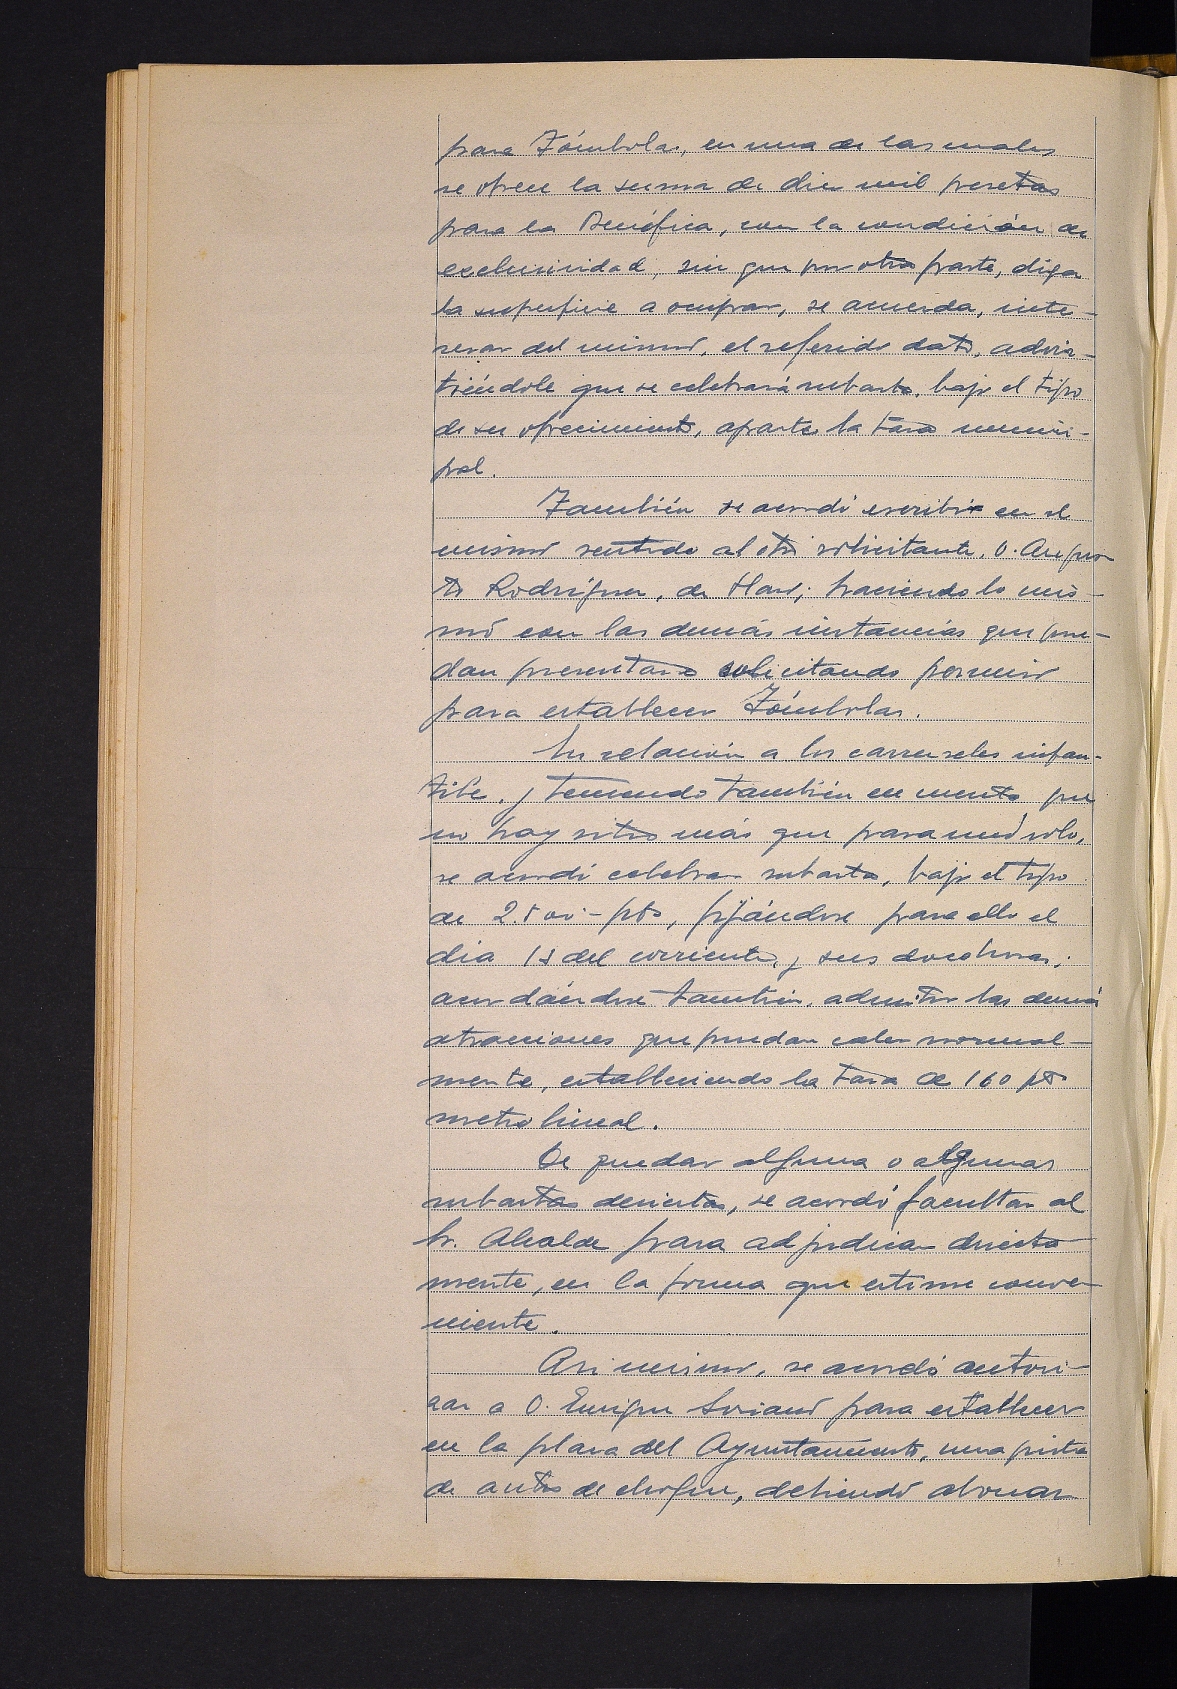 para Tómbolas, en una de las cuales
se ofrece la suma de diez mil pesetas
para la Benéfica, con la condición de
exclusividad, sin que por otra parte, diga
la superficie a ocupar, se acuerda, inte-
resar del mismo, el referido dato, advir-
tiéndole que se celebrará subasta, bajo el tipo
de su ofrecimiento, aparte la tasa munici-
pal.
También se acordó escribir en el
mismo sentido al otro solicitante, D. Augus-
to Rodríguez, de Haro; haciendo lo mis-
mo con las demás instancias que pue-
dan presentarse solicitando permiso
para establecer Tómbolas.
En relación a los carruseles infan-
tiles, y teniendo también en cuenta que
no hay sitio más que para uno solo,
se acordó celebrar subasta, bajo el tipo
de pts, fijándose para ello el
día del corriente, y sus doce horas;
acordándose también, admitir las demás
atracciones que puedan caber normal-
mente, estableciendo la tasa de 160 pts
metro lineal.
De quedar alguna o algunas
subastas desiertas, se acordó facultar al
Sr. Alcalde para adjudicar directa
mente, en la forma que estime conve-
niente.
Asimismo, se acordó autori-
zar a D. Enrique Soriano para establecer
en la plaza del Ayuntamiento, una pista
de autos de choque, debiendo abonar